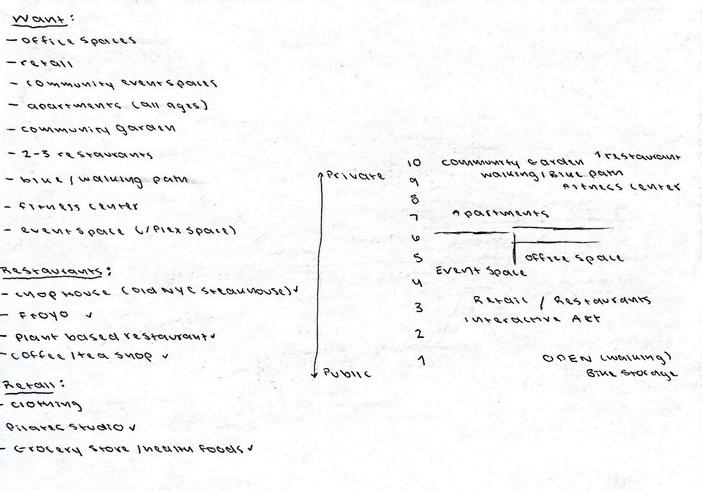 Want:
- office spaces
- retail
- community event spaces
- apartments (all ages)
- community garden
- 2-3 restaurants
- bike / walking path
- fitness center
- event space (/flex space)
Restaurants:
- chop house (old NYC steakhouse) ✓
- Froyo ✓
- plant based restaurant ✓
- coffee / tea shop ✓
Retail:
- clothing
Pilates Studio ✓
- Grocery store / health foods ✓
Private
Public
10 community Garden 1 restaurant
walking / Bike path
9
Fitness center
8
7 Apartments
6
5 office space
Event Space
4
3 Retail / Restaurants
interactive Art
2
1 OPEN (walking)
Bike storage